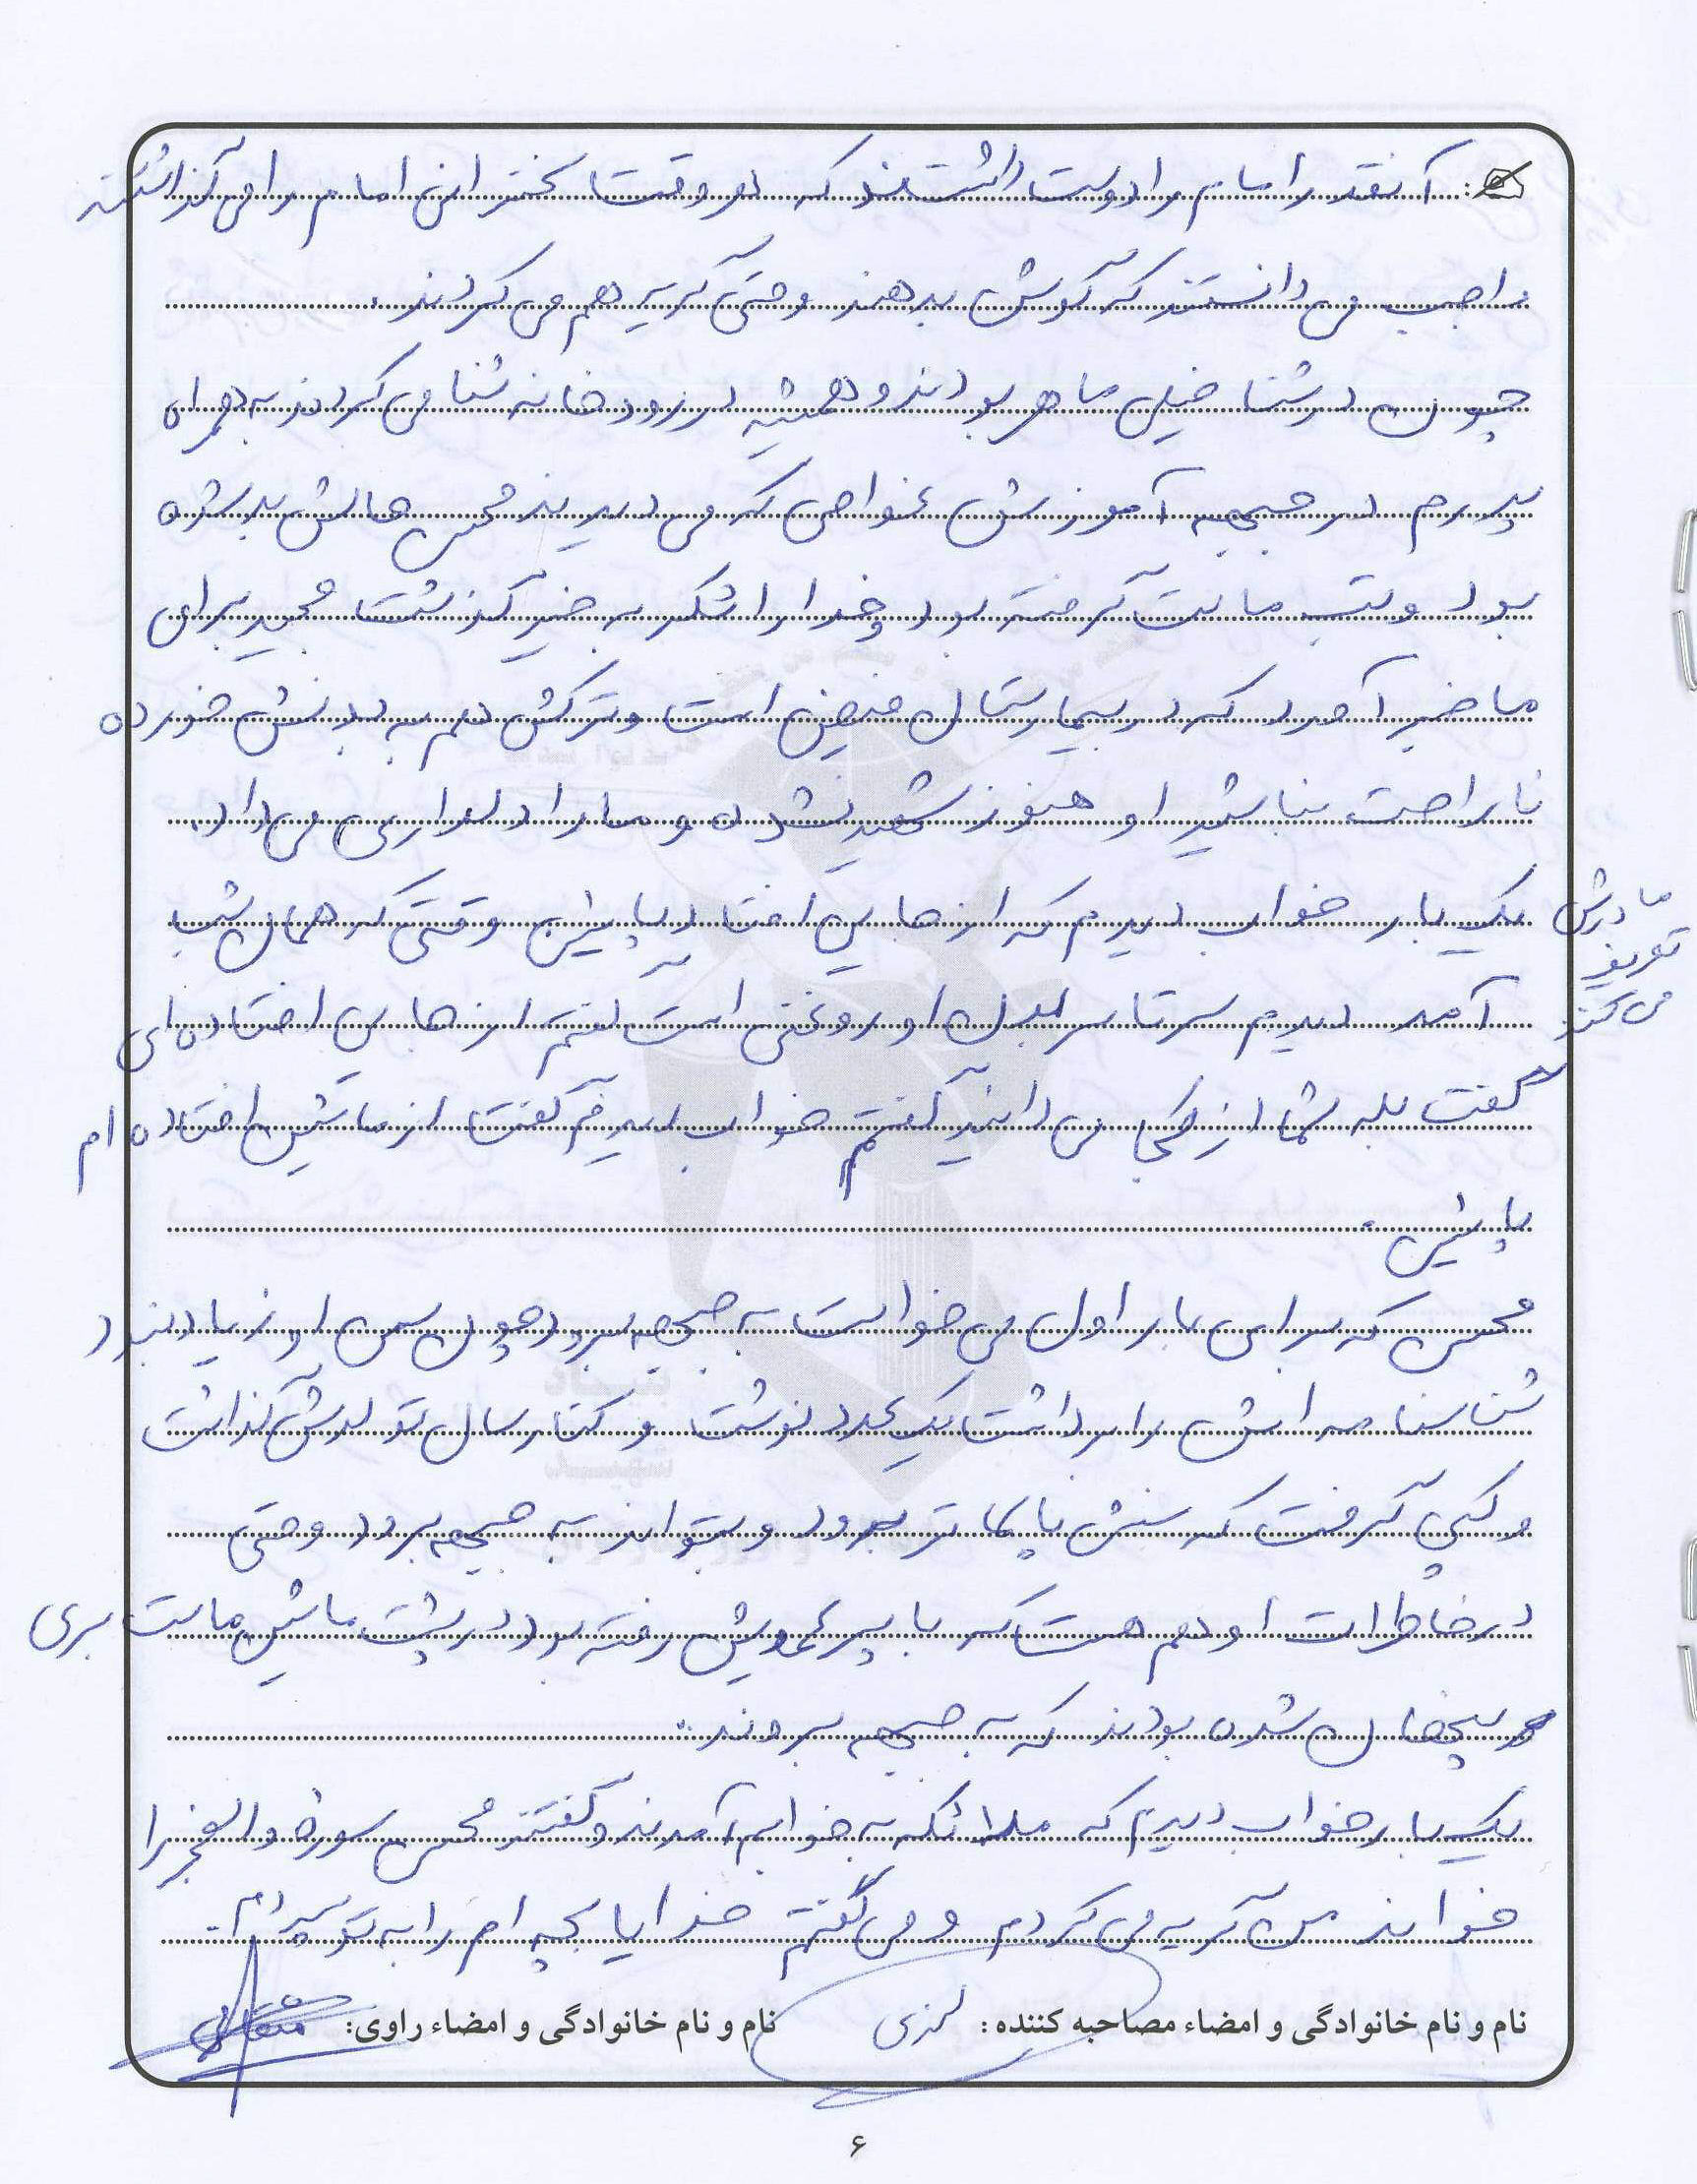 آنقدر امام را دوست داشتند که هر وقت سخنرانی امام را می گذاشتند
واجب می دانستند که گوش بدهند و حتی گریه هم می کردند.
چون در شنا خیلی ماهر بودند و همیشه در رودخانه شنا می کردند به همراه
پدرم در جبهه آموزش غواصی که می دیدند محسن حالش بد شده
بود و تب مالت گرفته بود و خدا را شکر به خیر گذشت مجید برای
ما خبر آورد که در بیمارستان مریض است و ترکش هم به بدنش خورده
ناراحت نباشید او هنوز شهید نشده و ما را دلداری می داد.
مادرش تعریف می کند:
یک بار خواب دیدم که از جایی افتاد پایین وقتی که همان شب
آمد دیدم سر تا سر بدن او روغنی است گفتم از جایی افتاده ای
گفت بله شما از کجا می دانید گفتم خواب دیدم گفت از ماشین افتاده ام
پایین.
محسن که برای بار اول می خواست به جبهه برود چون سن او زیاد نبود
شناسنامه اش را برداشت یک عدد نوشت و کنار سال تولدش گذاشت
و کپی گرفت که سنش بالاتر برود و بتواند به جبهه برود و حتی
در خاطرات او هم هست که با پسر عمویش رفته بود در پشت ماشین ماست بری
پنهان شده بودند که به جبهه بروند.
یک بار خواب دیدم که ملائکه به خوابم آمدند و گفتند محسن سوره والفجر را
خواند من گریه می کردم و می گفتم خدایا بچه ام را به تو سپردم.
نام و نام خانوادگی و امضاء مصاحبه کننده:
نام و نام خانوادگی و امضاء راوی:
۶